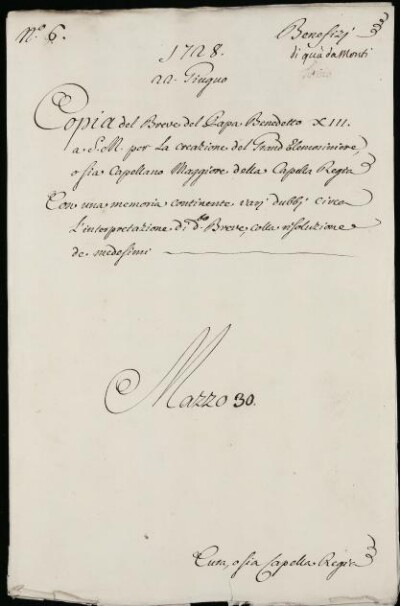 N.º 6.
Benefizj
di quà da Monti
1728.
22. Giugno
Copia del Breve del Papa Benedetto XIII.
a S. M. per La creazione del Grand'Elemosiniere,
o sia Capellano Maggiore della Capella Regia
Con una memoria continente varj dubbj circa
L'interpretazione di d.º Breve, colla risoluzione
de medesimi
Mazzo 30.
Cura, o sia Capella Regia